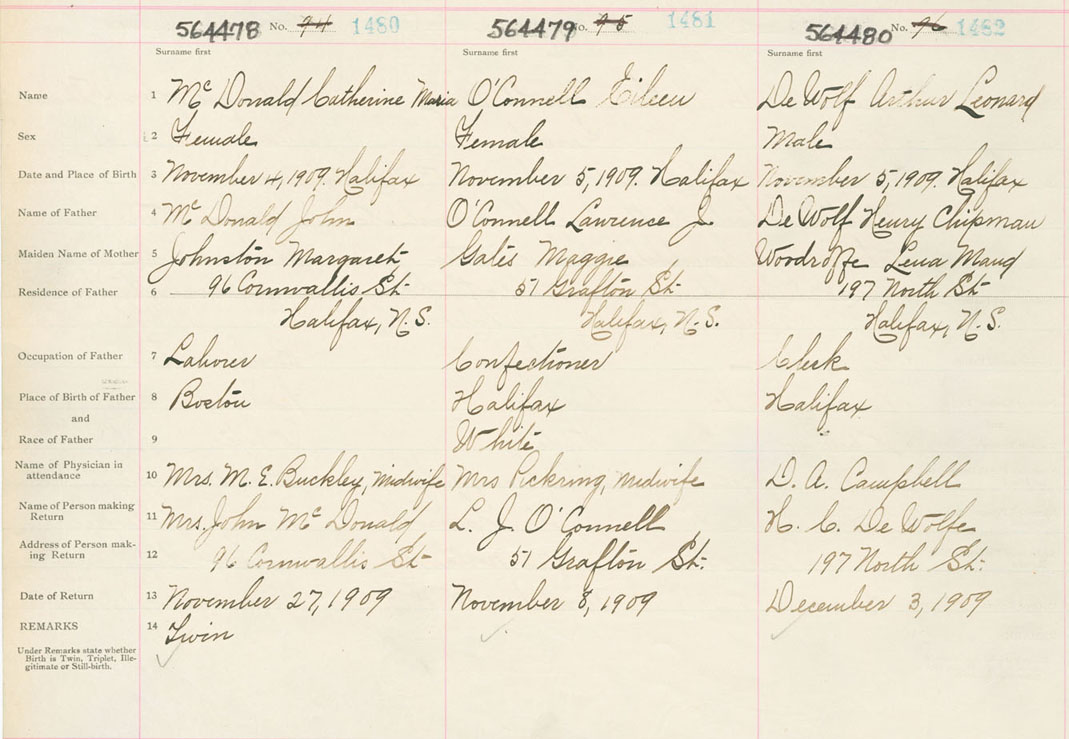 564478 No. 94 1480 564479 No. 95 1481 564480 No. 96 1482
Surname first Surname first Surname first
Name 1 McDonald Catherine Maria O'Connell Eileen De Wolf Arthur Leonard
Sex 2 Female Female Male
Date and Place of Birth 3 November 4, 1909. Halifax November 5, 1909. Halifax November 5, 1909. Halifax
Name of Father 4 McDonald John O'Connell Lawrence J. De Wolf Henry Chipman
Maiden Name of Mother 5 Johnston Margaret Gates Maggie Woodroffe Lena Maud
Residence of Father 6 96 Cornwallis St. 51 Grafton St. 197 North St.
Halifax, N.S. Halifax, N.S. Halifax, N.S.
Occupation of Father 7 Laborer Confectioner Clerk
Place of Birth of Father 8 Boston Halifax Halifax
and
Race of Father 9 White
Name of Physician in
attendance 10 Mrs. M. E. Buckley, midwife Mrs Pickring, midwife D. A. Campbell
Name of Person making
Return 11 Mrs. John McDonald L. J. O'Connell H. C. De Wolfe
Address of Person mak-
ing Return 12 96 Cornwallis St 51 Grafton St. 197 North St.
Date of Return 13 November 27, 1909 November 8, 1909 December 3, 1909
REMARKS 14 Twin
Under Remarks state whether
Birth is Twin, Triplet, Ille-
gitimate or Still-birth.